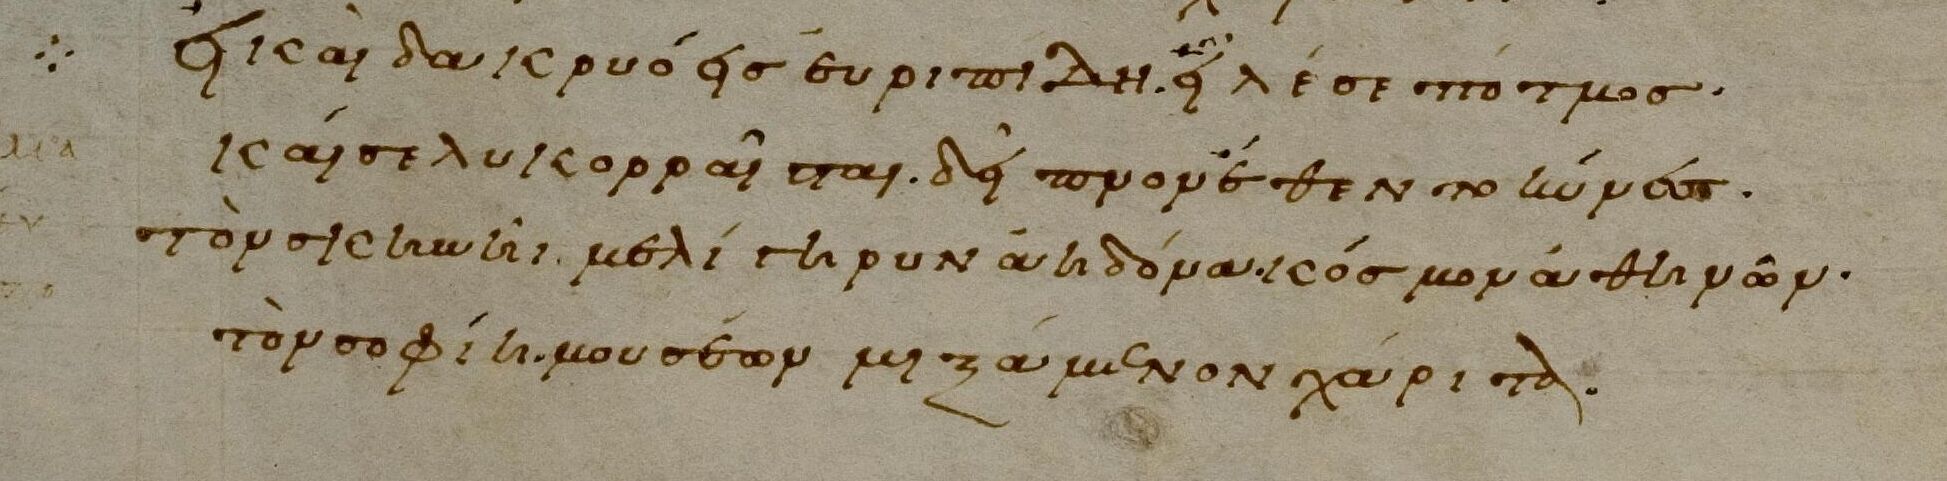 εἰ καὶ δακρυόεις εὐριπίδη. εἷλέ σε πότμος·
καί σε λυκορραῖσται. δεῖπνον ἔθεντο κύνες.
τὸν σκηνῆι μελίγηρυν ἀηδόνα. κόσμον ἀθηνῶν.
τὸν σοφίη. μουσέων μιξάμενον χάριτα.